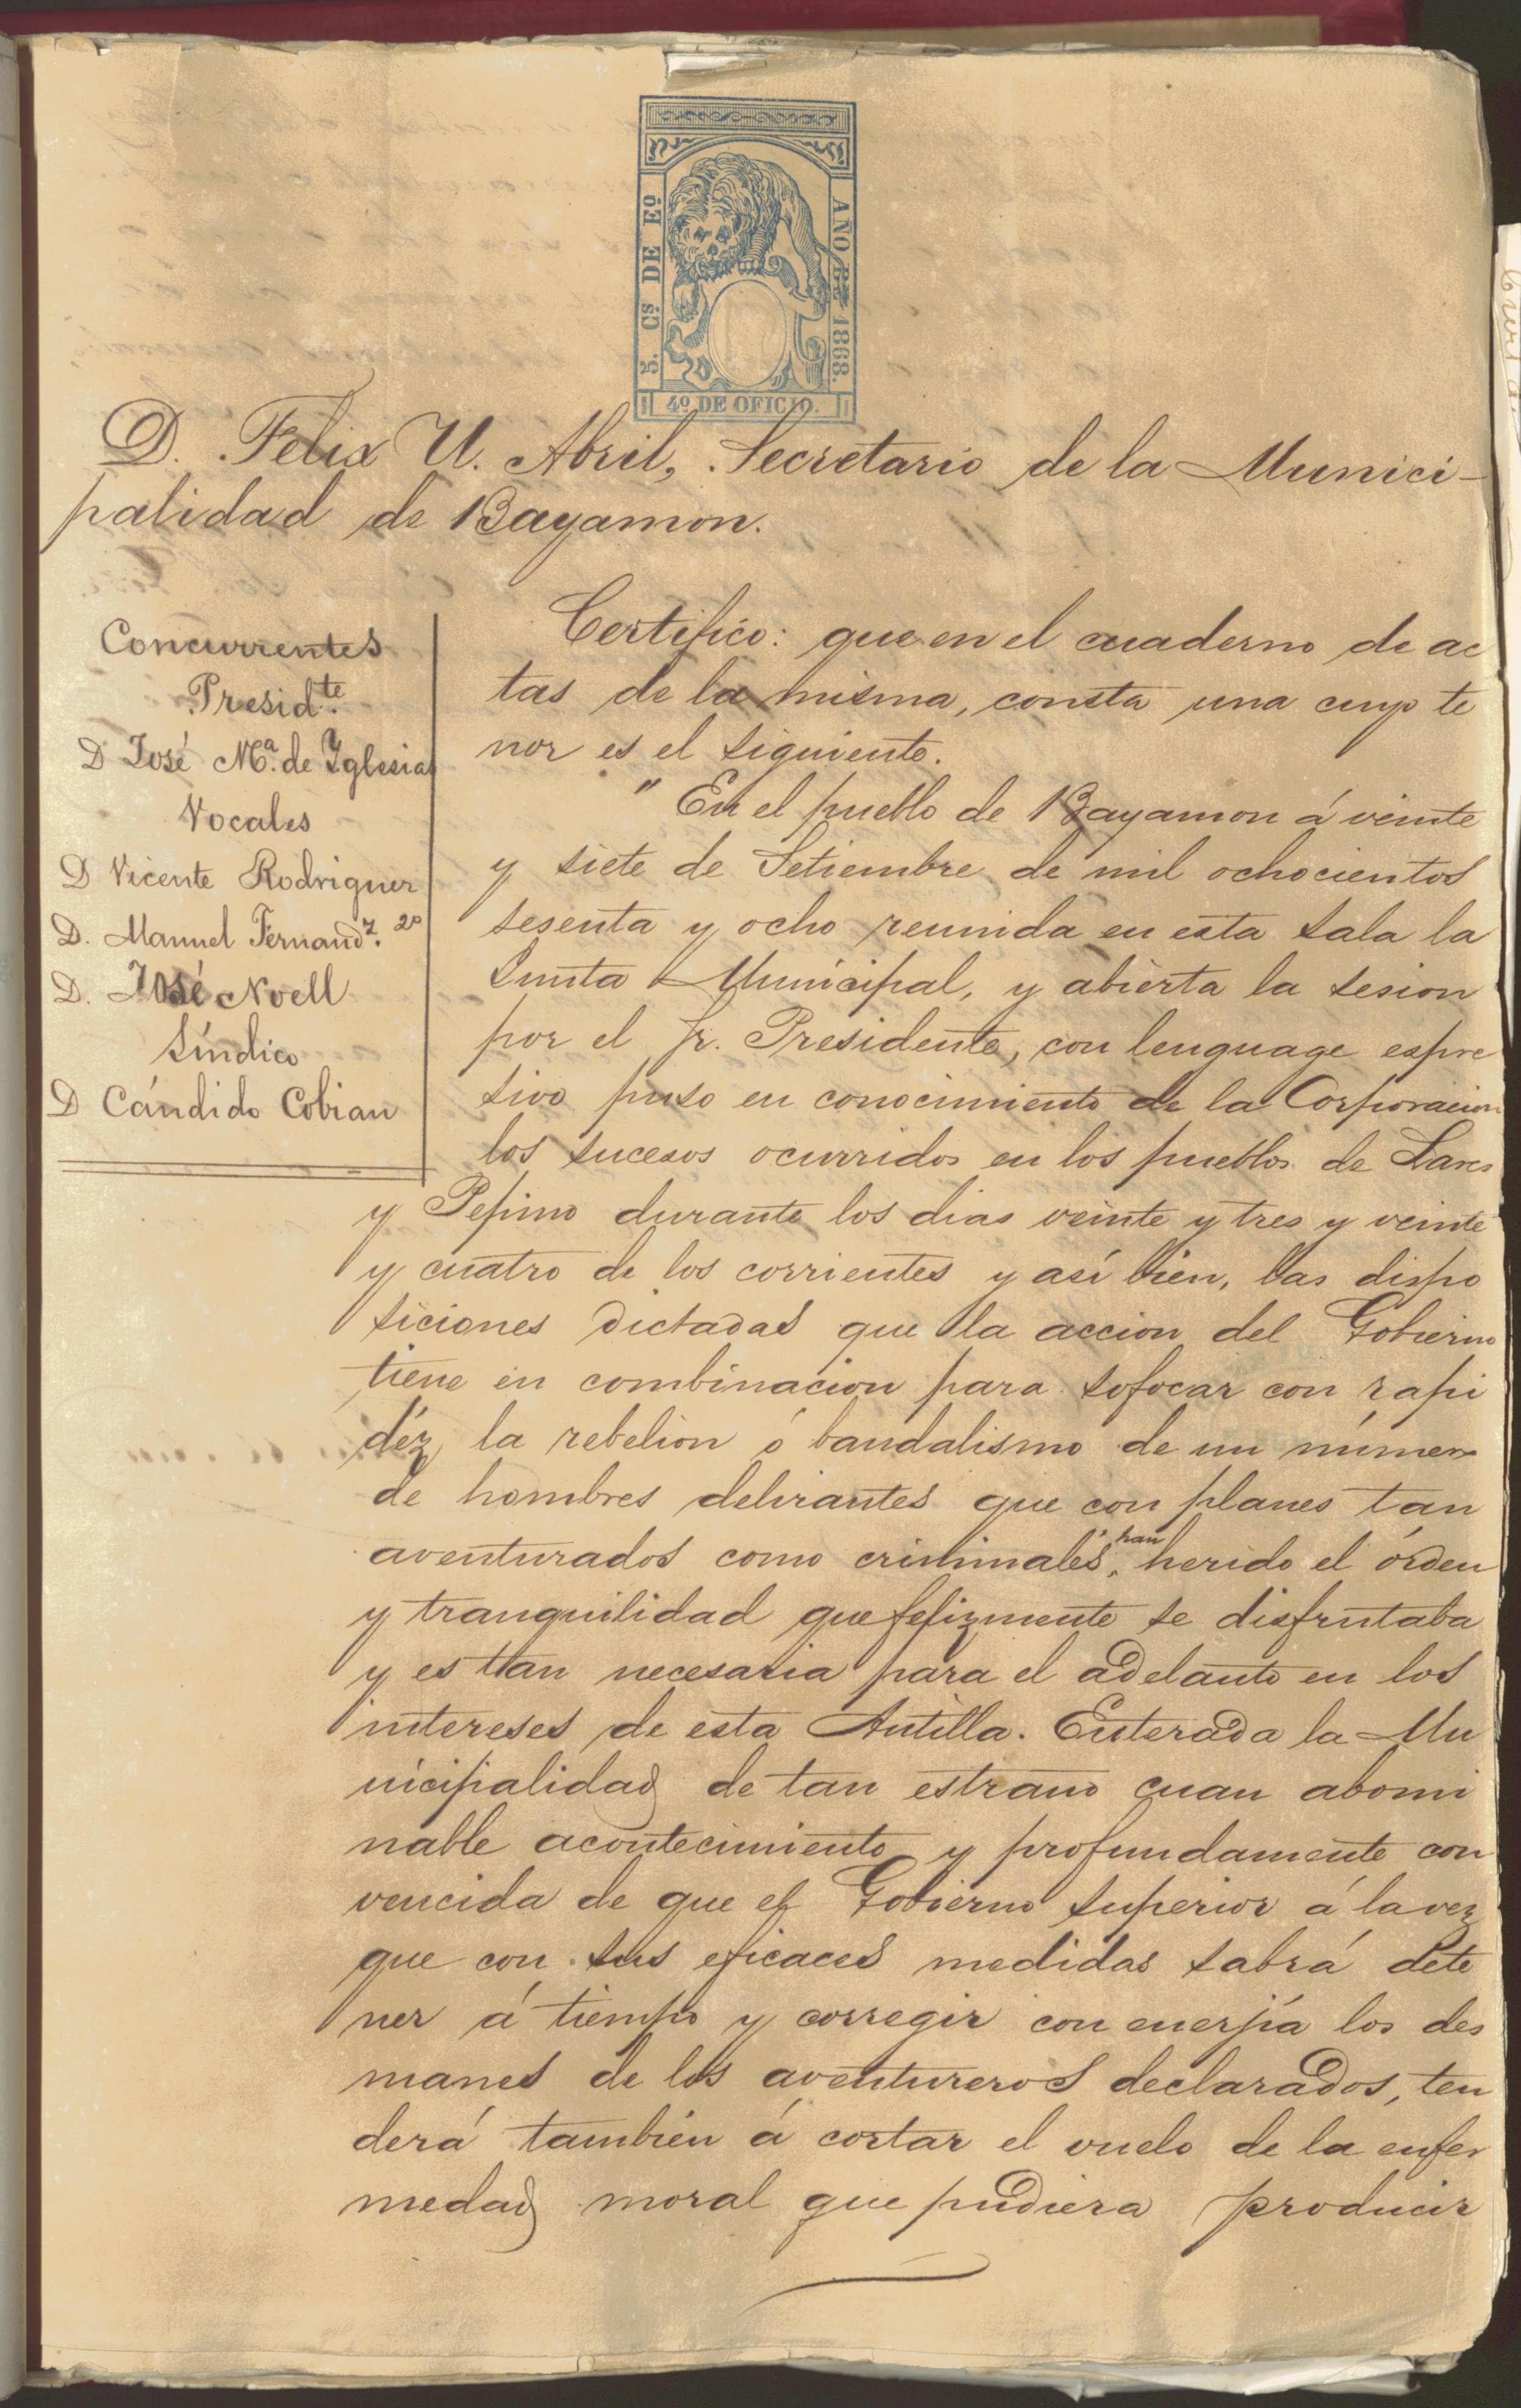 5. Cs. DE Eº
AÑO DE 1868.
4º DE OFICIO.
D. Felix U. Abril, Secretario de la Munici-
palidad de Bayamon.
Concurrentes
Presidte.
D José Mª. de Yglesias
Vocales
D Vicente Rodriguez
D. Manuel Fernandz. 2º
D. José Noell
Síndico
D Cándido Cobian
Certifico: que en el cuaderno de ac
tas de la misma, consta una cuyo te
nor es el siguiente.
" En el pueblo de Bayamon á veinte
y siete de Setiembre de mil ochocientos
sesenta y ocho reunida en esta sala la
Junta Municipal, y abierta la sesion
por el Sr. Presidente, con lenguage espre
sivo puso en conocimiento de la Corporacion
los sucesos ocurridos en los pueblos de Lares
y Pepino durante los dias veinte y tres y veinte
y cuatro de los corrientes y así bien, las dispo
siciones dictadas que la accion del Gobierno
tiene en combinacion para sofocar con rapi
déz la rebelion ó bandalismo de un número
de hombres delirantes que con planes tan
aventurados como criminales, han herido el órden
y tranquilidad que felizmente se disfrutaba
y es tan necesaria para el adelanto en los
intereses de esta Antilla. Enterada la Mu
nicipalidad de tan estraño cuan abomi
nable acontecimiento y profundamente con
vencida de que el Gobierno Superior á la vez
que con sus eficaces medidas sabrá dete
ner á tiempo y corregir con enerjía los des
manes de los aventureros declarados, ten
derá también á cortar el vuelo de la enfer
medad moral que pudiera producir